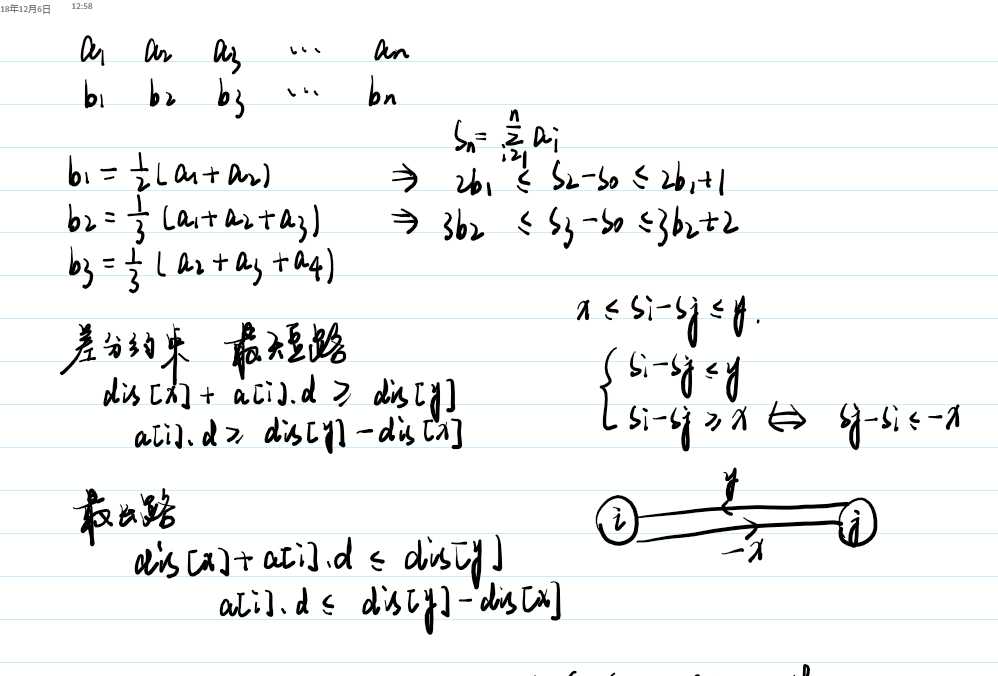 18年12月6日 12:58
a1 a2 a3 ... an
b1 b2 b3 ... bn
Sn = ∑_{i=1}^{n} ai
b1 = 1/2 (a1 + a2) ⇒ 2b1 ≤ S2 - S0 ≤ 2b1 + 1
b2 = 1/3 (a1 + a2 + a3) ⇒ 3b2 ≤ S3 - S0 ≤ 3b2 + 2
b3 = 1/3 (a2 + a3 + a4)
x ≤ Si - Sj ≤ y.
差分约束 最短路
{ Si - Sj ≤ y
dis[x] + a[i].d ≥ dis[y]
Si - Sj ≥ x ⇔ Sj - Si ≤ -x
a[i].d ≥ dis[y] - dis[x]
y
最长路
i j
-x
dis[x] + a[i].d ≤ dis[y]
a[i].d ≤ dis[y] - dis[x]